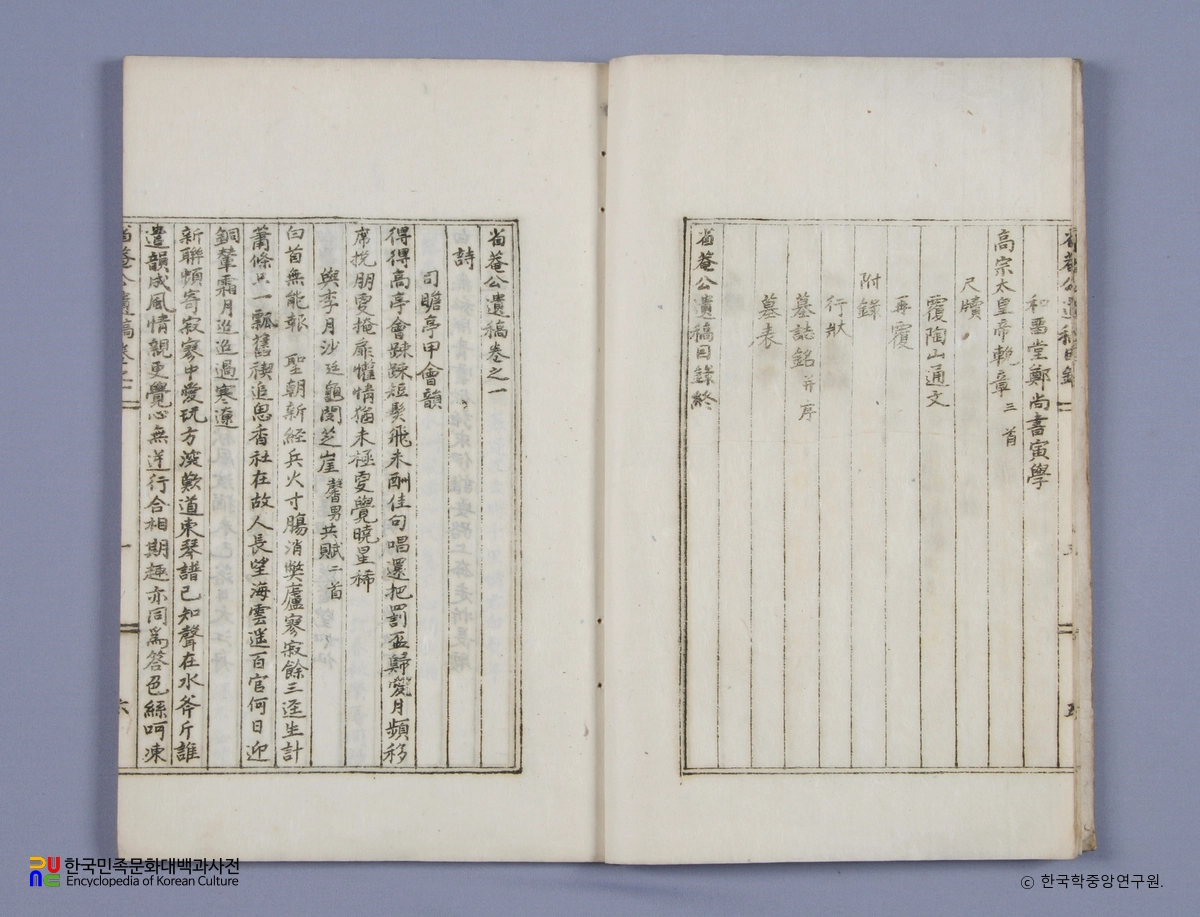 和晋堂鄭尚書寅學
高宗太皇帝輓章 三首
尺牘
覆陶山通文
再覆
附錄
行狀
墓誌銘 并序
墓表
省菴公遺稿目錄終
省菴公遺稿卷之一
詩
司瞻亭甲會韻
得得高亭會踈踈短髮飛未酬佳句唱還把罰盃歸愛月頻移
席挽朋更掩扉懽情猶未極更覺曉星稀
與李月沙廷龜閔芝崖馨男共賦 二首
白首無能報 聖朝新經兵火寸膓消弊廬寥寂餘三逕生計
蕭條只一瓢舊禊追思香社在故人長望海雲遥百官何日迎
銅輦霜月迢迢過寒遼
新聯頓寄寂寥中愛玩方深歎道東琴譜已知聲在水斧斤誰
遣韻成風情親更覺心無逆行合相期趣亦同爲答色絲呵凍
省菴公遺稿卷之一
一
六
한국민족문화대백과사전
Encyclopedia of Korean Culture
© 한국학중앙연구원.